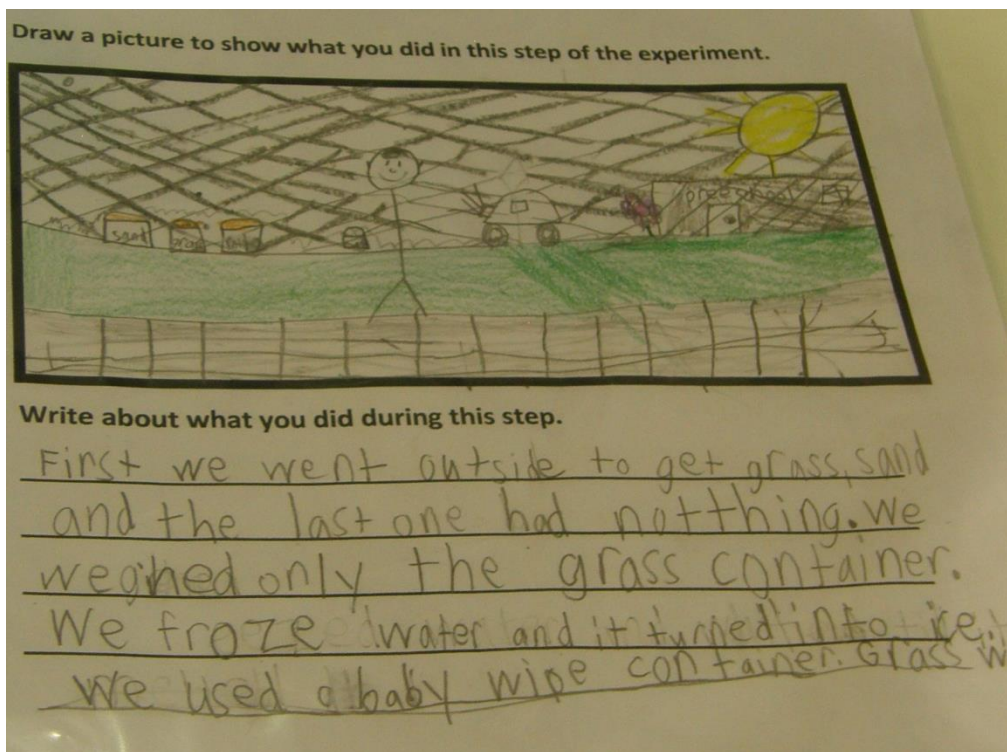 Draw a picture to show what you did in this step of the experiment.
sand
preschool
Write about what you did during this step.
First we went outside to get grass, sand
and the last one had notthing. We
weghed only the grass container.
We froze water and it turned into ice.
We used a baby wipe container. Grass w